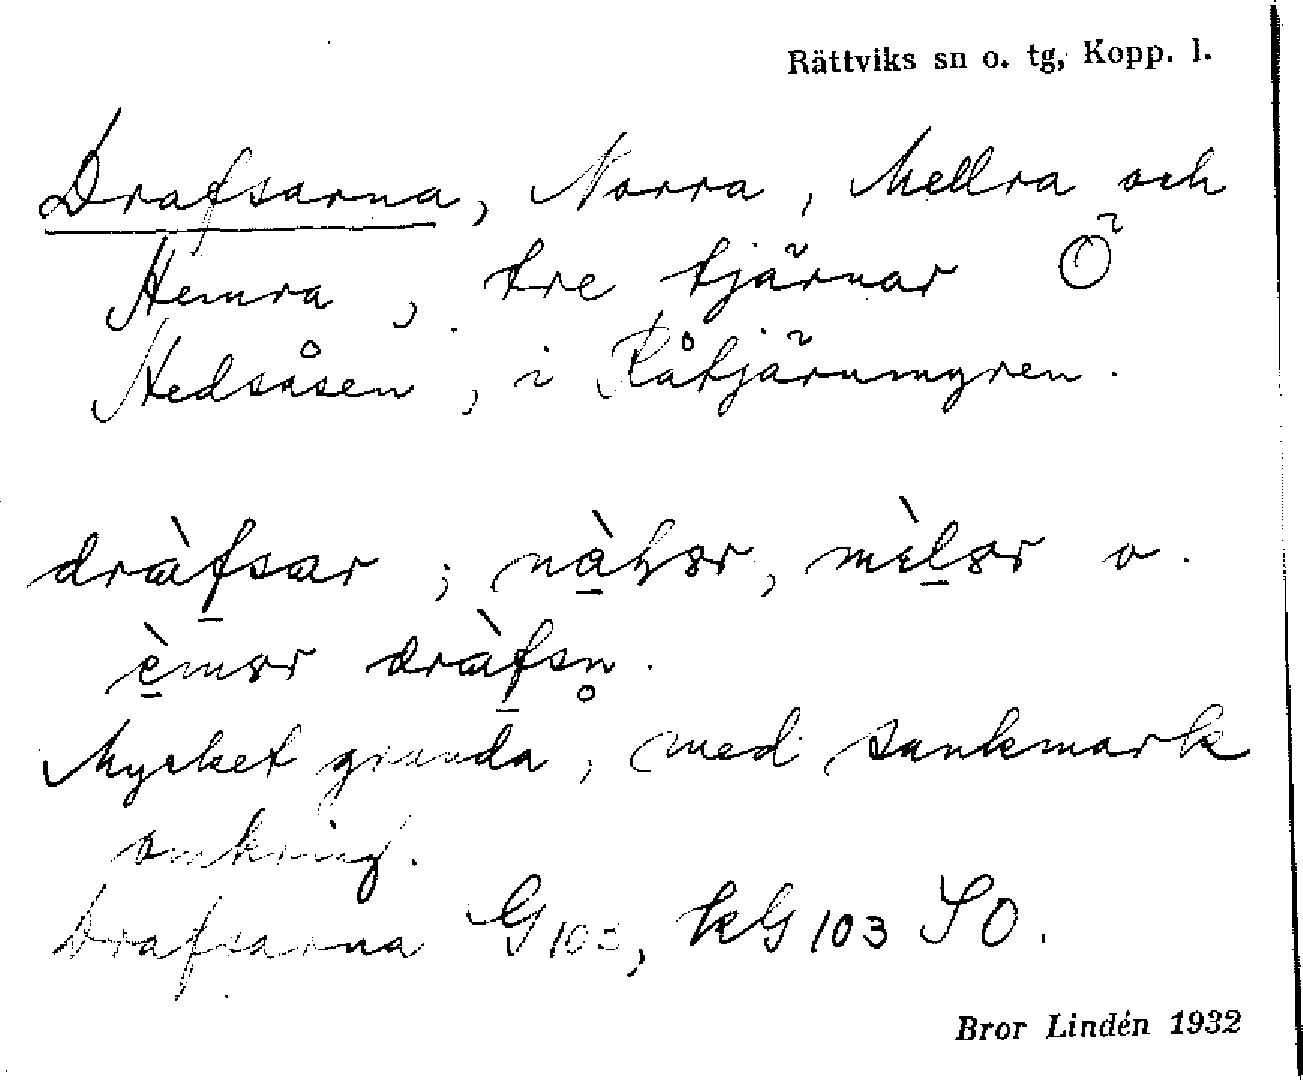 Rättviks sn o. tg, Kopp. l.
Drafsarna, Norra, Mellra och
Hemra, tre tjärnar Ö
Hedsåsen, i Råtjärnmyren.
dràfsar; nàhər, mèlər o.
èmər dràfsn̥.
Mycket grunda, med sankmark
omkring.
Drafsarna G 103, kG 103 SO.
Bror Lindén 1932